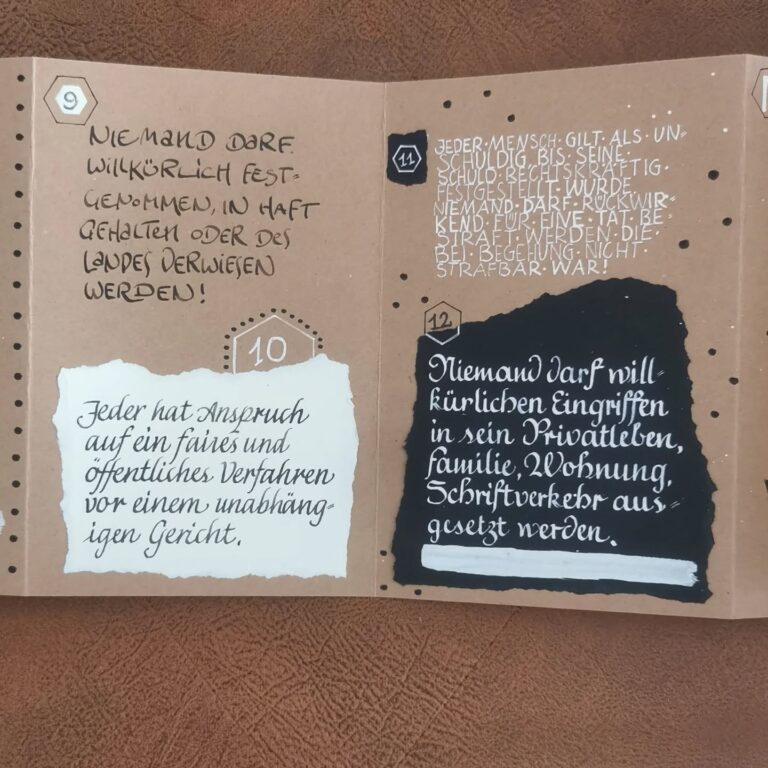 9
NIEMAND DARF
WILLKÜRLICH FEST=
GENOMMEN, IN HAFT
GEHALTEN ODER DES
LANDES VERWIESEN
WERDEN!
10
Jeder hat Anspruch
auf ein faires und
öffentliches Verfahren
vor einem unabhäng=
igen Gericht.
11
JEDER·MENSCH·GILT·ALS·UN=
SCHULDIG·BIS·SEINE·
SCHULD·RECHTSKRÄFTIG·
FESTGESTELLT·WURDE.
NIEMAND·DARF·RÜCKWIR=
KEND·FÜR·EINE·TAT·BE=
STRAFT·WERDEN·DIE·
BEI·BEGEHUNG·NICHT·
STRAFBAR·WAR!
12
Niemand darf will=
kürlichen Eingriffen
in sein Privatleben,
Familie, Wohnung,
Schriftverkehr aus=
gesetzt werden.